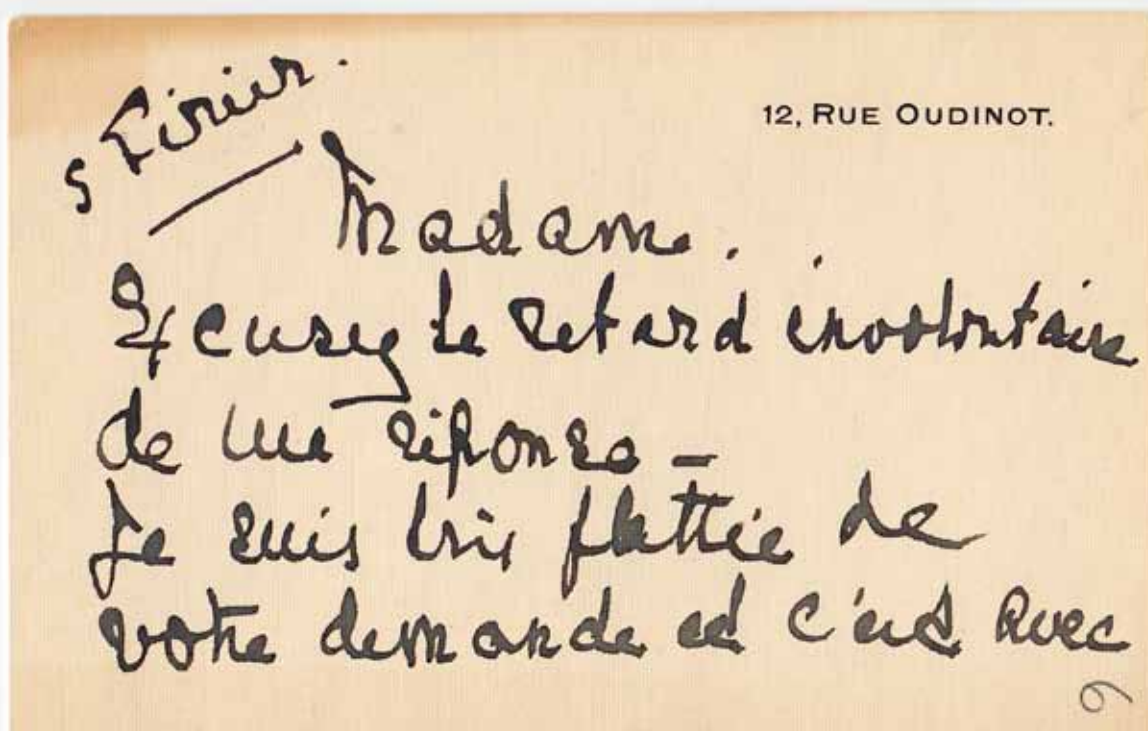 5 Février.
12, RUE OUDINOT.
Madame.
Excusez le retard involontaire
de ma réponse –
Je suis très flattée de
votre demande et c'est avec
6